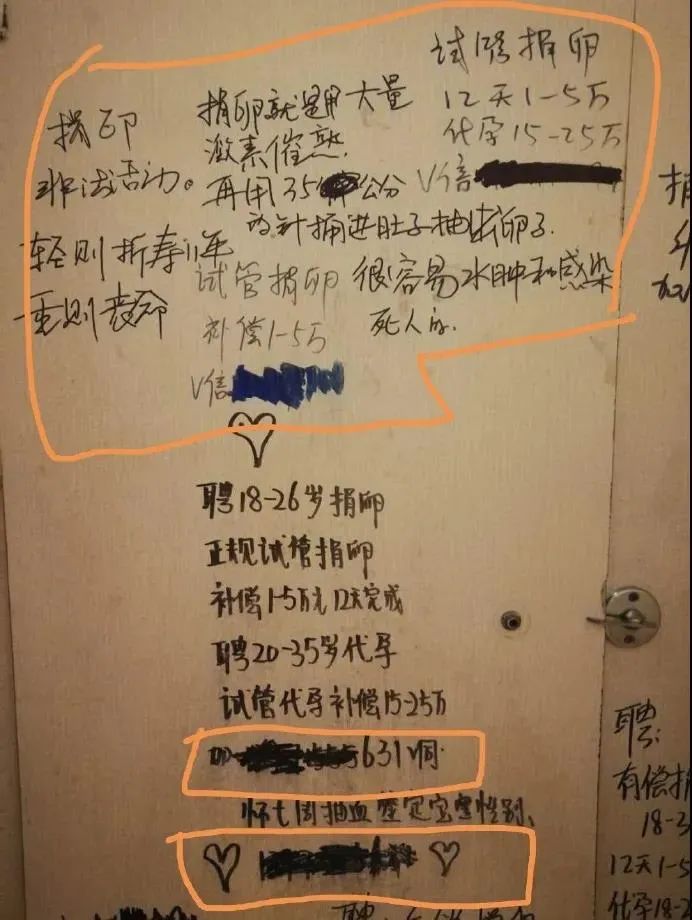 试管捐卵
12天1-5万
代孕15-25万
V信
捐卵
非法活动。
轻则折寿11年
重则丧命
捐卵就是用大量
激素催熟.
再用35公分
的针捅进肚子抽出卵子.
很容易水肿和感染
死人的.
试管捐卵
补偿1-5万
V信
聘18-26岁捐卵
正规试管捐卵
补偿1-5万元12天完成
聘20-35岁代孕
试管代孕补偿15-25万
631 同
怀七周抽血鉴定宝宝性别、
捐
聘:
有偿捐
18-3
12天1-5
代孕18-2
聘: